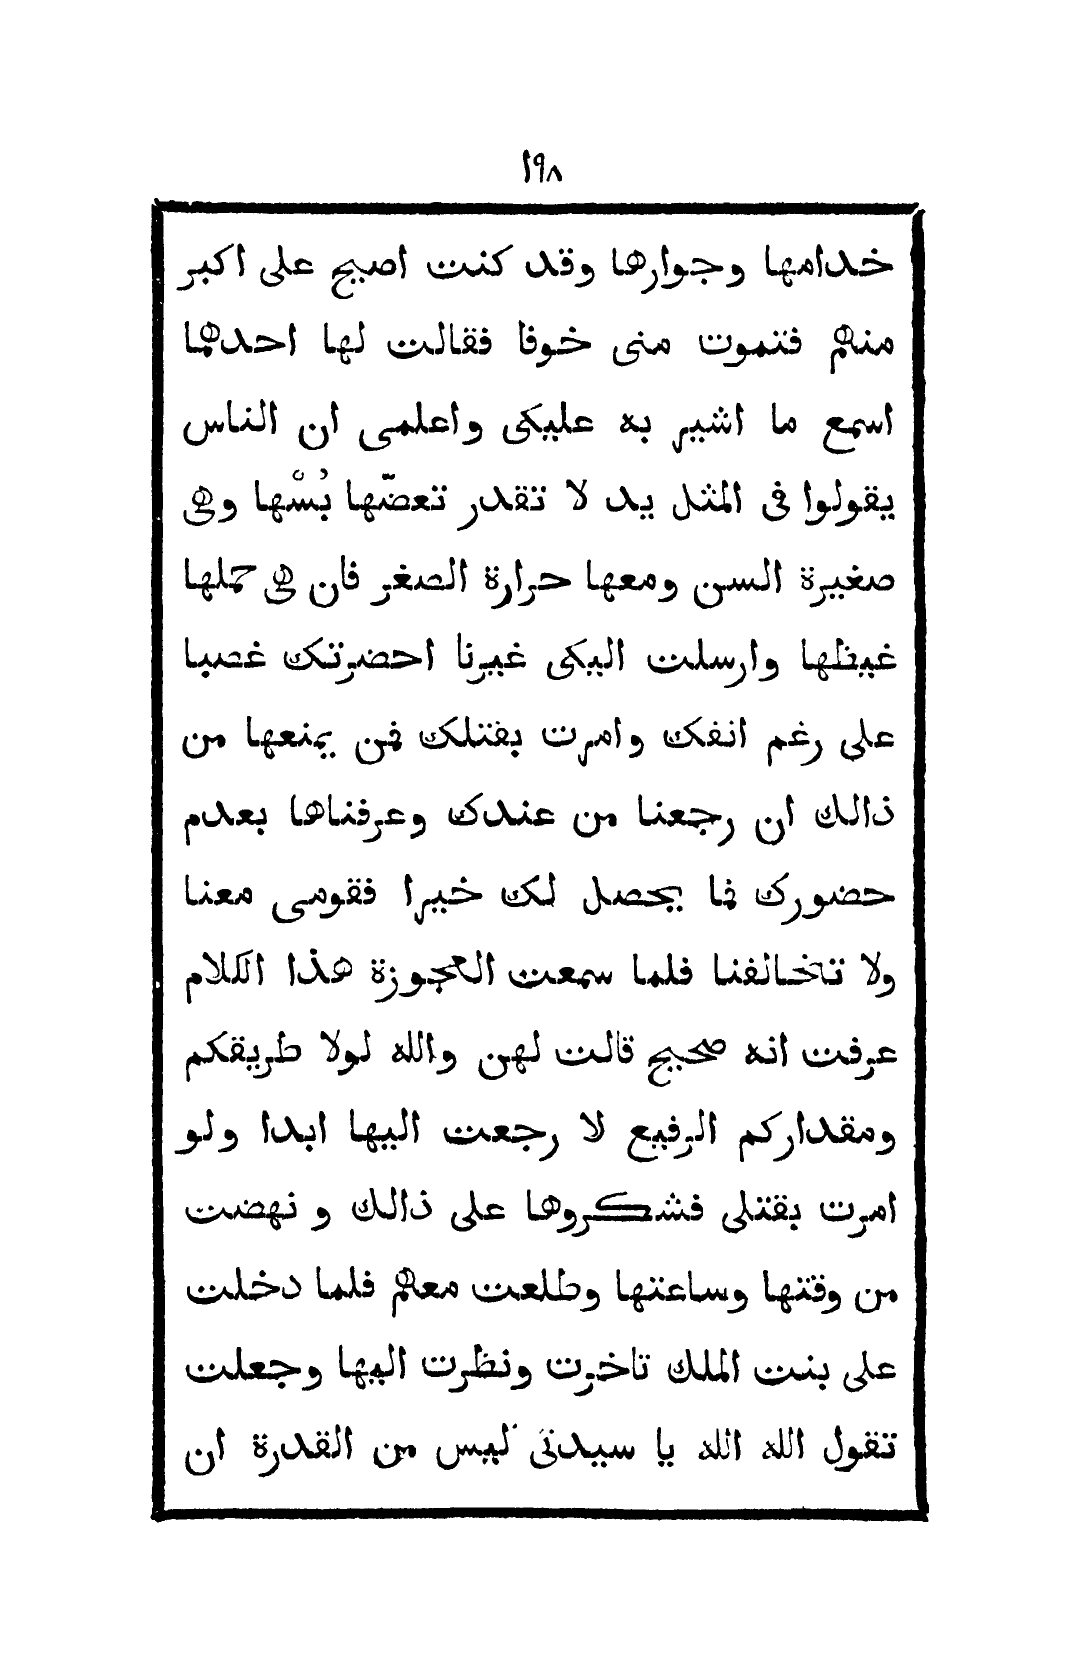 ١٩٨
خدامها وجوارها وقد كنت اصيح على اكبر
منهم فتموت منى خوفا فقالت لها احدهما
اسمع ما اشير به عليكى واعلمى ان الناس
يقولوا فى المثل يد لا تقدر تعضّها بُسْها وهى
صغيرة السن ومعها حرارة الصغر فان هى حملها
غيظها وارسلت اليكى غيرنا احضرتك غصبا
على رغم انفك وامرت بقتلك فمن يمنعها من
ذالك ان رجعنا من عندك وعرفناها بعدم
حضورك فما يحصل لك خيرا فقومى معنا
ولا تخالفنا فلما سمعت العجوزة هذا الكلام
عرفت انه صحيح قالت لهن والله لولا طريقكم
ومقداركم الرفيع لا رجعت اليها ابدا ولو
امرت بقتلى فشكروها على ذالك و نهضت
من وقتها وساعتها وطلعت معهم فلما دخلت
على بنت الملك تاخرت ونظرت اليها وجعلت
تقول الله الله يا سيدتى ليس من القدرة ان